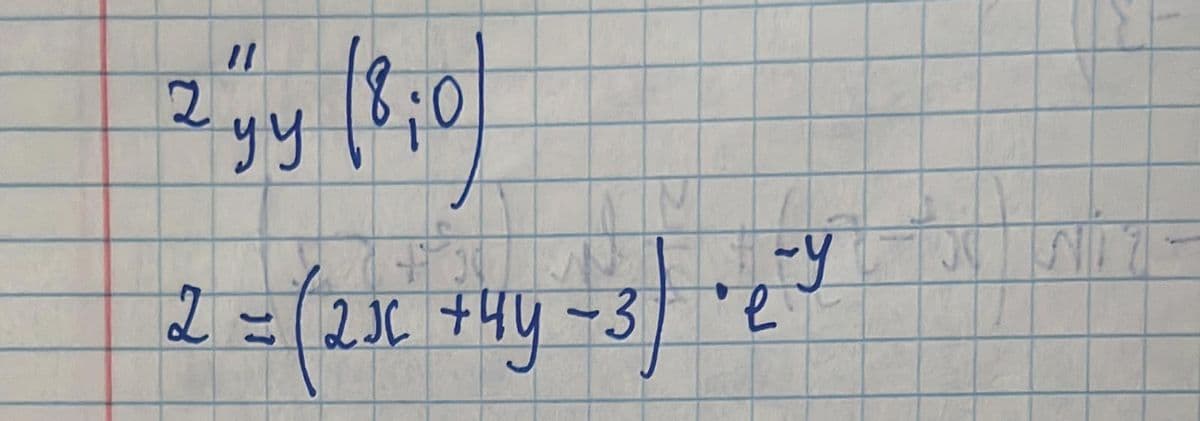 z''yy (8;0)
z = (2x + 4y - 3) · e^-y